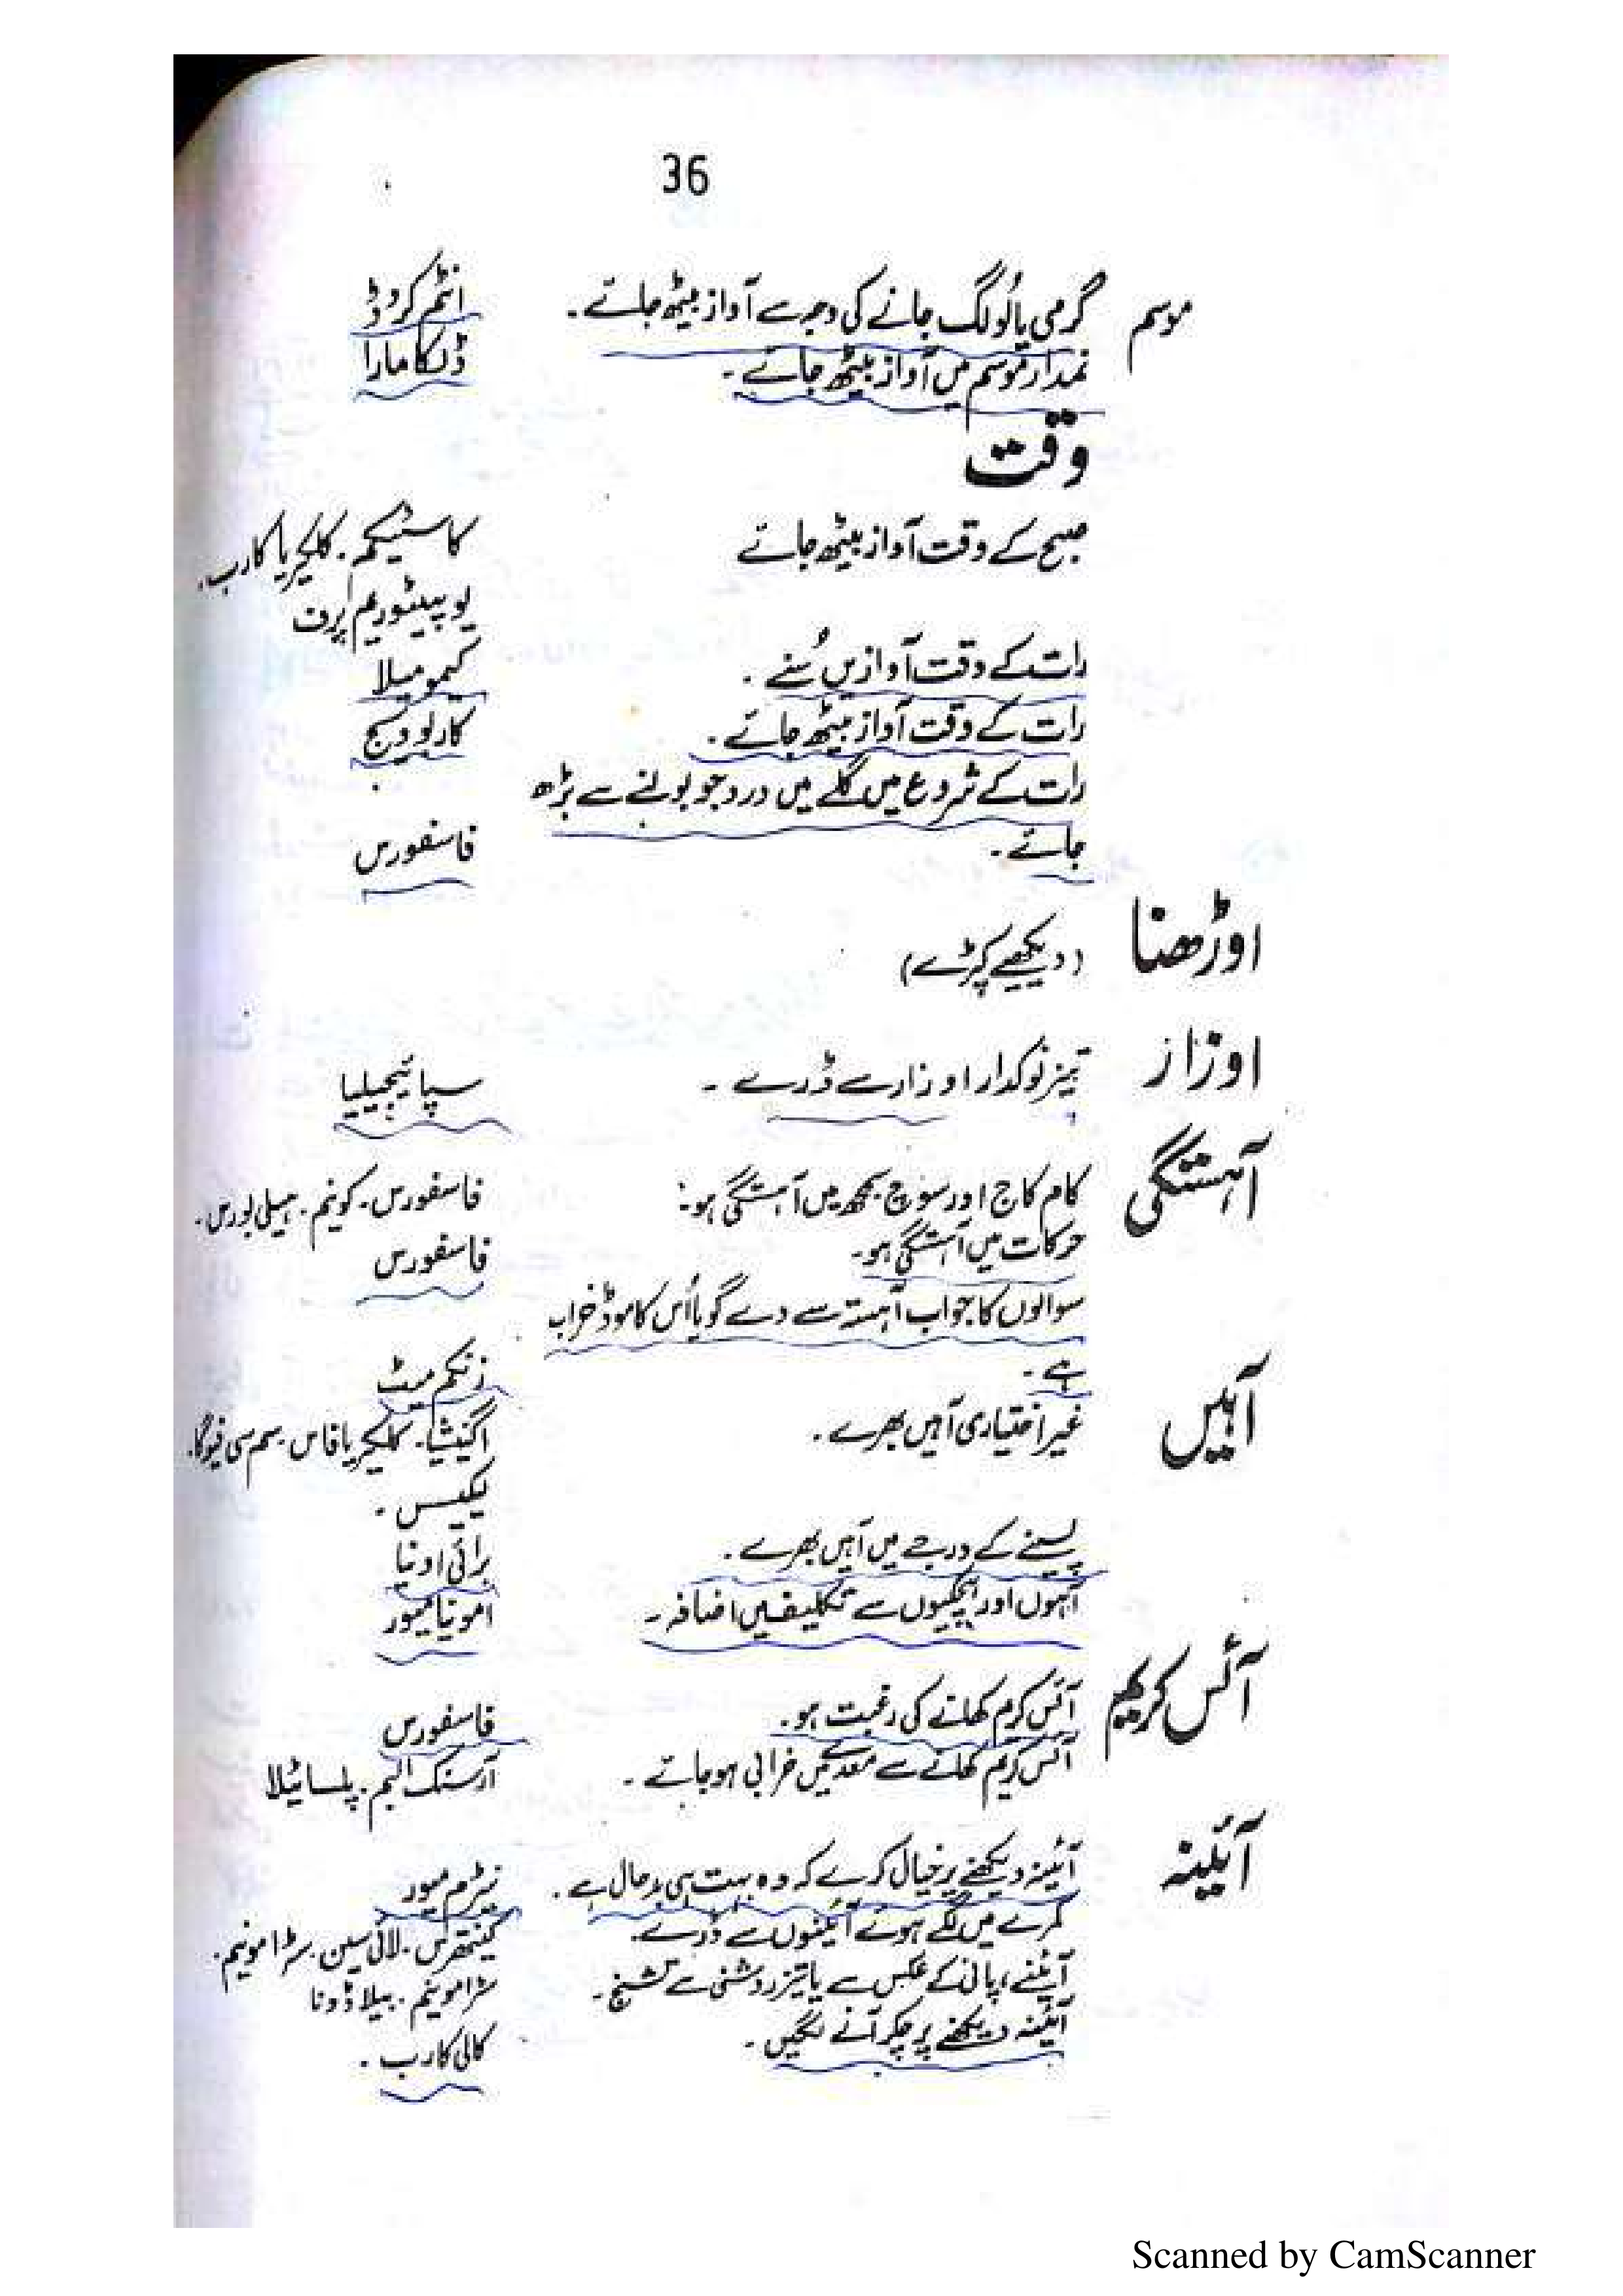 36
موسم گرمی یا لُو لگ جانے کی وجہ سے آواز بیٹھ جائے۔ انٹم کروڈ
نمدار موسم میں آواز بیٹھ جائے۔ ڈلکامارا
وقت
صبح کے وقت آواز بیٹھ جائے کاسٹیکم۔ کلکیریا کارب۔
یوپیٹوریم پرف
رات کے وقت آوازیں سُنے۔ کیمومیلا
رات کے وقت آواز بیٹھ جائے۔ کاربو ویج
رات کے شروع میں گلے میں درد جو بولنے سے بڑھ
جائے۔ فاسفورس
اوڑھنا (دیکھیے کپڑے)
اوزاز تیز نوکدار اوزار سے ڈرے۔ سپائیجیلیا
آہستگی کام کاج اور سوچ سمجھ میں آہستگی ہو: فاسفورس۔ کونیم۔ ہیلی بورس۔
حرکات میں آہستگی ہو۔ فاسفورس
سوالوں کا جواب آہستہ سے دے گویا اُس کا موڈ خراب
ہے۔ زنکم میٹ
آہیں غیر اختیاری آہیں بھرے۔ اگنیشا۔ کلکیریا فاس۔ سمی سی فیوگا۔
لیکیسس۔
پسینے کے درجے میں آہیں بھرے۔ برائی اونیا
آہوں اور ہچکیوں سے تکلیف میں اضافہ۔ امونیا میور
آئس کریم آئس کرم کھانے کی رغبت ہو۔ فاسفورس
آئس کریم کھانے سے معدے میں خرابی ہو جائے۔ آرسنک البم۔ پلساٹیلا
آئینہ آئینہ دیکھنے پر خیال کرے کہ وہ بہت ہی بدحال ہے۔ نیٹرم میور
کمرے میں لگے ہوئے آئینوں سے ڈرے۔ کینتھرس۔ لائی سین۔ سٹرامونیم۔
آئینے، پانی کے عکس سے یا تیز روشنی سے تشنج۔ سٹرامونیم۔ بیلاڈونا
آئینہ دیکھنے پر چکر آنے لگیں۔ کالی کارب۔
Scanned by CamScanner